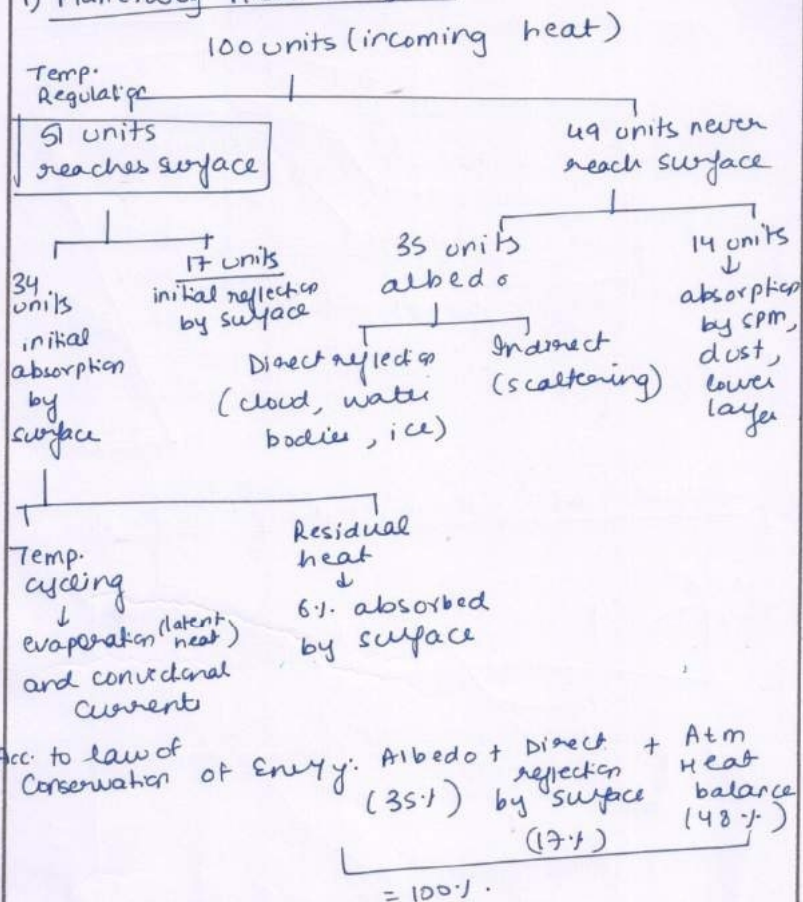 100 units (incoming heat)
Temp.
Regulation
51 units
reaches surface
49 units never
reach surface
34
units
initial
absorption
by
surface
17 units
initial reflection
by surface
35 units
albedo
14 units
↓
absorption
by spm,
dust,
lower
layer
Direct reflection
(cloud, water
bodies, ice)
Indirect
(scattering)
Temp.
cycling
↓
evaporation (latent heat)
and convectional
currents
Residual
heat
↓
6% absorbed
by surface
Acc. to law of
Conservation of Energy: Albedo + Direct + Atm
reflection Heat
(35%) by surface balance
(17%) (48%)
= 100%.